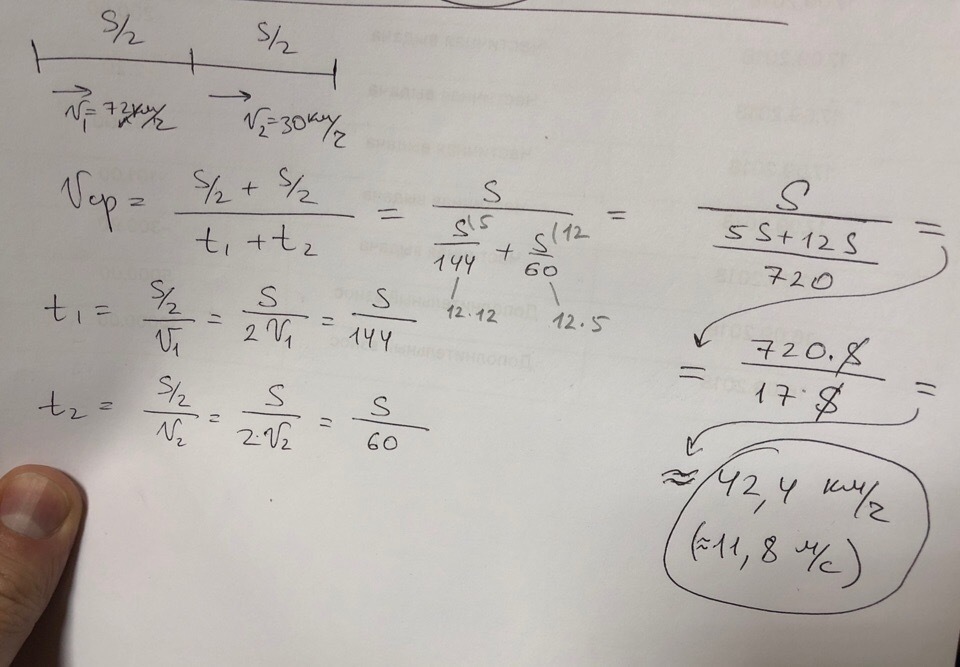 S/2 S/2
V₁=72км/ч V₂=30км/ч
Vср = (S/2 + S/2)/(t₁ + t₂) = S/(S⁽⁵/144 + S⁽¹²/60) = S/((5S+12S)/720) =
12·12 12·5
t₁ = (S/2)/V₁ = S/(2V₁) = S/144
= (720·S)/(17·S) =
t₂ = (S/2)/V₂ = S/(2·V₂) = S/60
≈ 42,4 км/ч
(≈11,8 м/с)